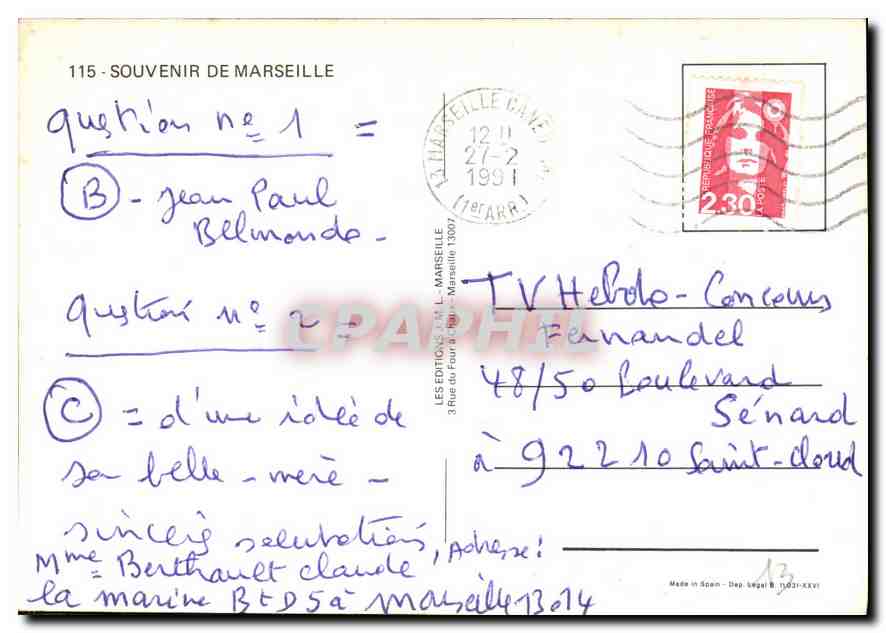 115 - SOUVENIR DE MARSEILLE
question no 1 =
B - Jean Paul
Belmondo -
question no 2 =
C = d'une idée de
sa belle-mère -
sincères salutations, Adresse:
Mme Berthault Claude
la marine Bt D5 à Marseille 13014
13 MARSEILLE CANE
12 H
27-2
1991
(1er ARR)
REPUBLIQUE FRANÇAISE
2.30
LA POSTE
LES EDITIONS J.M.L. - MARSEILLE
3 Rue du Four à Chaux - Marseille 13007
CPAPHIL
TV Hebdo - Concours
Fernandel
48/50 Boulevard
Sénard
à 92210 Saint-Cloud
13
Made in Spain - Dep. Legal B. 11.031-XXVI